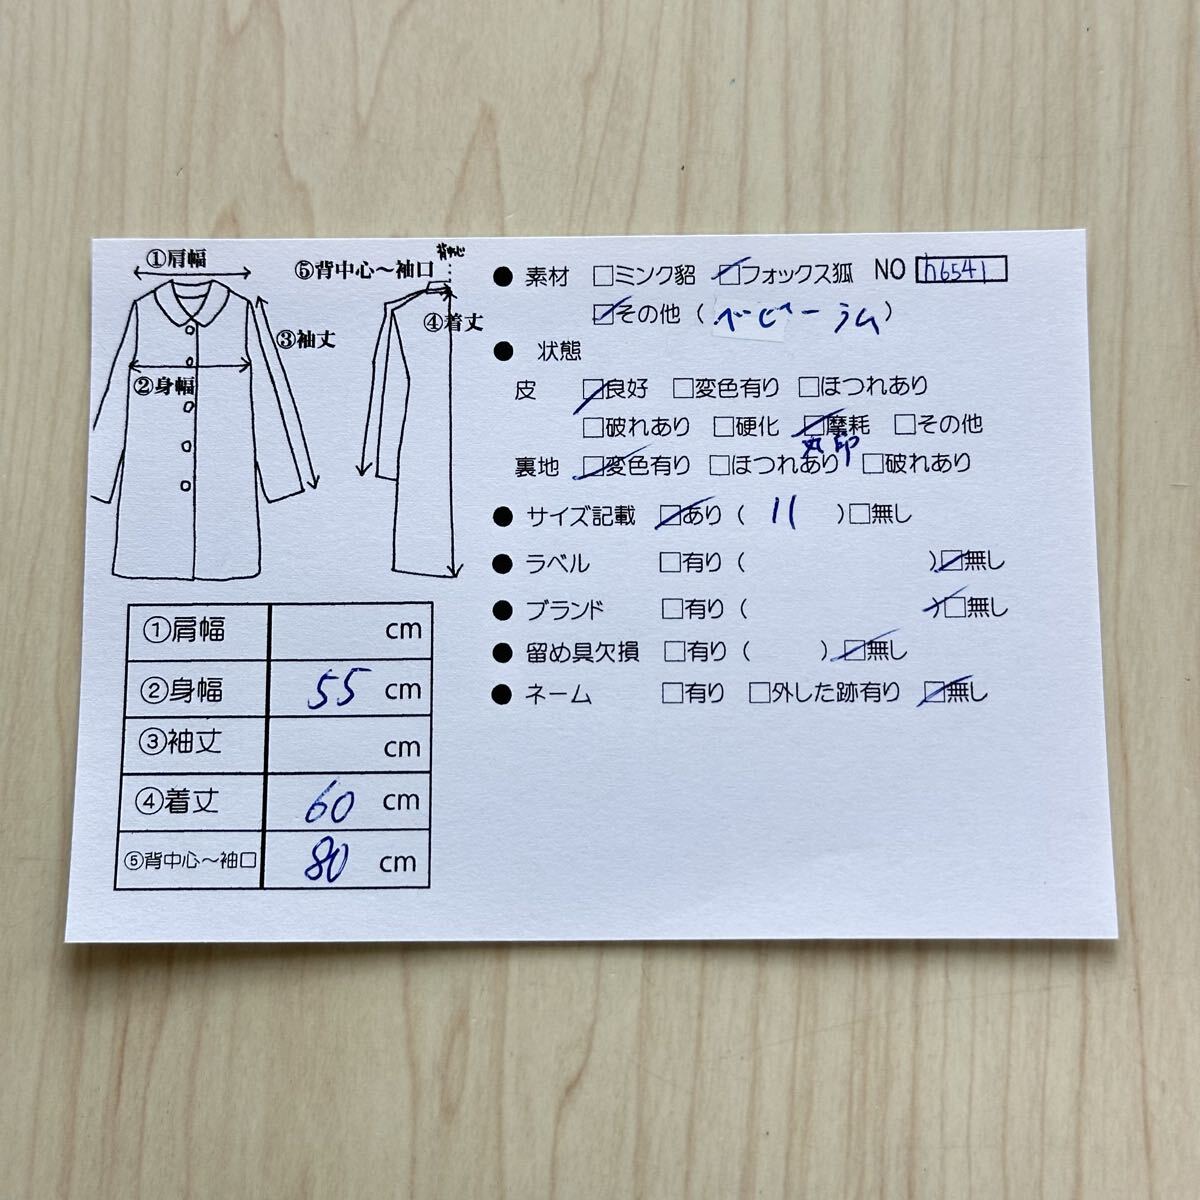 ①肩幅
⑤背中心～袖口
背中心
③袖丈
④着丈
②身幅
①肩幅 cm
②身幅 55 cm
③袖丈 cm
④着丈 60 cm
⑤背中心～袖口 80 cm
● 素材 □ミンク貂 ☑フォックス狐 NO h6541
☑その他 (ベビーラム)
● 状態
皮 ☑良好 □変色有り □ほつれあり
□破れあり □硬化 ☑摩耗 □その他
丸印
裏地 ☑変色有り □ほつれあり □破れあり
● サイズ記載 ☑あり ( 11 ) □無し
● ラベル □有り ( ) ☑無し
● ブランド □有り ( ) ☑無し
● 留め具欠損 □有り ( ) ☑無し
● ネーム □有り □外した跡有り ☑無し